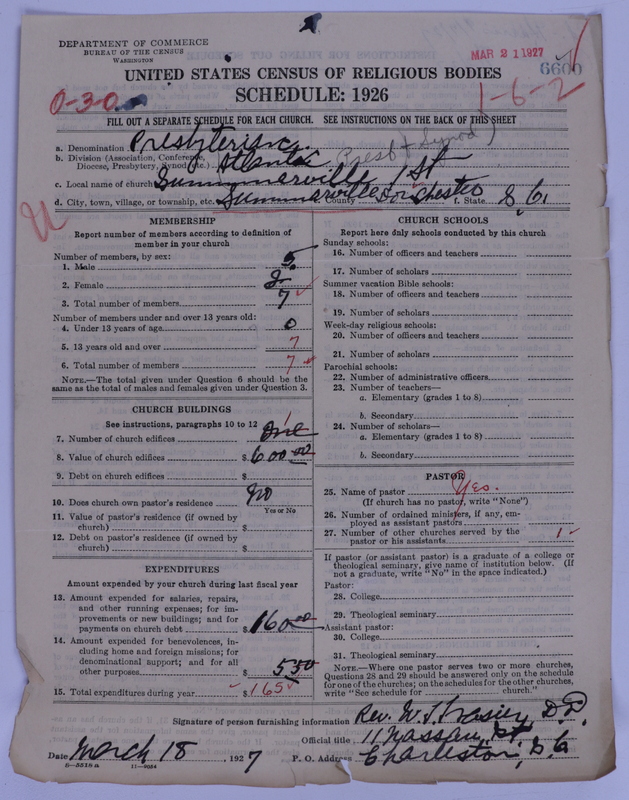 DEPARTMENT OF COMMERCE
BUREAU OF THE CENSUS
WASHINGTON
MAR 21 1927
6600
UNITED STATES CENSUS OF RELIGIOUS BODIES
0-3-0
SCHEDULE: 1926
1-6-2
FILL OUT A SEPARATE SCHEDULE FOR EACH CHURCH. SEE INSTRUCTIONS ON THE BACK OF THIS SHEET
a. Denomination Presbyterian
b. Division (Association, Conference, Diocese, Presbytery, Synod, etc.) Atlantic Presb & Synod)
c. Local name of church Summerville 1st
d. City, town, village, or township, etc. Summerville County Dorchester f. State S. C.
MEMBERSHIP
Report number of members according to definition of member in your church
Number of members, by sex:
1. Male 5
2. Female 2
3. Total number of members 7
Number of members under and over 13 years old:
4. Under 13 years of age 0
5. 13 years old and over 7
6. Total number of members 7
NOTE.—The total given under Question 6 should be the same as the total of males and females given under Question 3.
CHURCH BUILDINGS
See instructions, paragraphs 10 to 12
7. Number of church edifices One 1
8. Value of church edifices $ 600.00
9. Debt on church edifices $
10. Does church own pastor's residence No
Yes or No
11. Value of pastor's residence (if owned by church) $
12. Debt on pastor's residence (if owned by church) $
EXPENDITURES
Amount expended by your church during last fiscal year
13. Amount expended for salaries, repairs, and other running expenses; for improvements or new buildings; and for payments on church debt $ 160.00
14. Amount expended for benevolences, including home and foreign missions; for denominational support; and for all other purposes $ 5.50
15. Total expenditures during year $ 165
CHURCH SCHOOLS
Report here only schools conducted by this church
Sunday schools:
16. Number of officers and teachers
17. Number of scholars
Summer vacation Bible schools:
18. Number of officers and teachers
19. Number of scholars
Week-day religious schools:
20. Number of officers and teachers
21. Number of scholars
Parochial schools:
22. Number of administrative officers
23. Number of teachers—
a. Elementary (grades 1 to 8)
b. Secondary
24. Number of scholars—
a. Elementary (grades 1 to 8)
b. Secondary
PASTOR
25. Name of pastor Yes.
(If church has no pastor, write "None")
26. Number of ordained ministers, if any, employed as assistant pastors
27. Number of other churches served by the pastor or his assistants 1
If pastor (or assistant pastor) is a graduate of a college or theological seminary, give name of institution below. (If not a graduate, write "No" in the space indicated.)
Pastor:
28. College
29. Theological seminary
Assistant pastor:
30. College
31. Theological seminary
NOTE.—Where one pastor serves two or more churches, Questions 28 and 29 should be answered only on the schedule for one of the churches; on the schedules for the other churches, write "See schedule for church."
Signature of person furnishing information Rev. W. J. Frasier, D.D.
Official title 11 Nassau St.
Date March 18, 1927 P. O. Address Charleston, S. C
8-5518a 11-9054